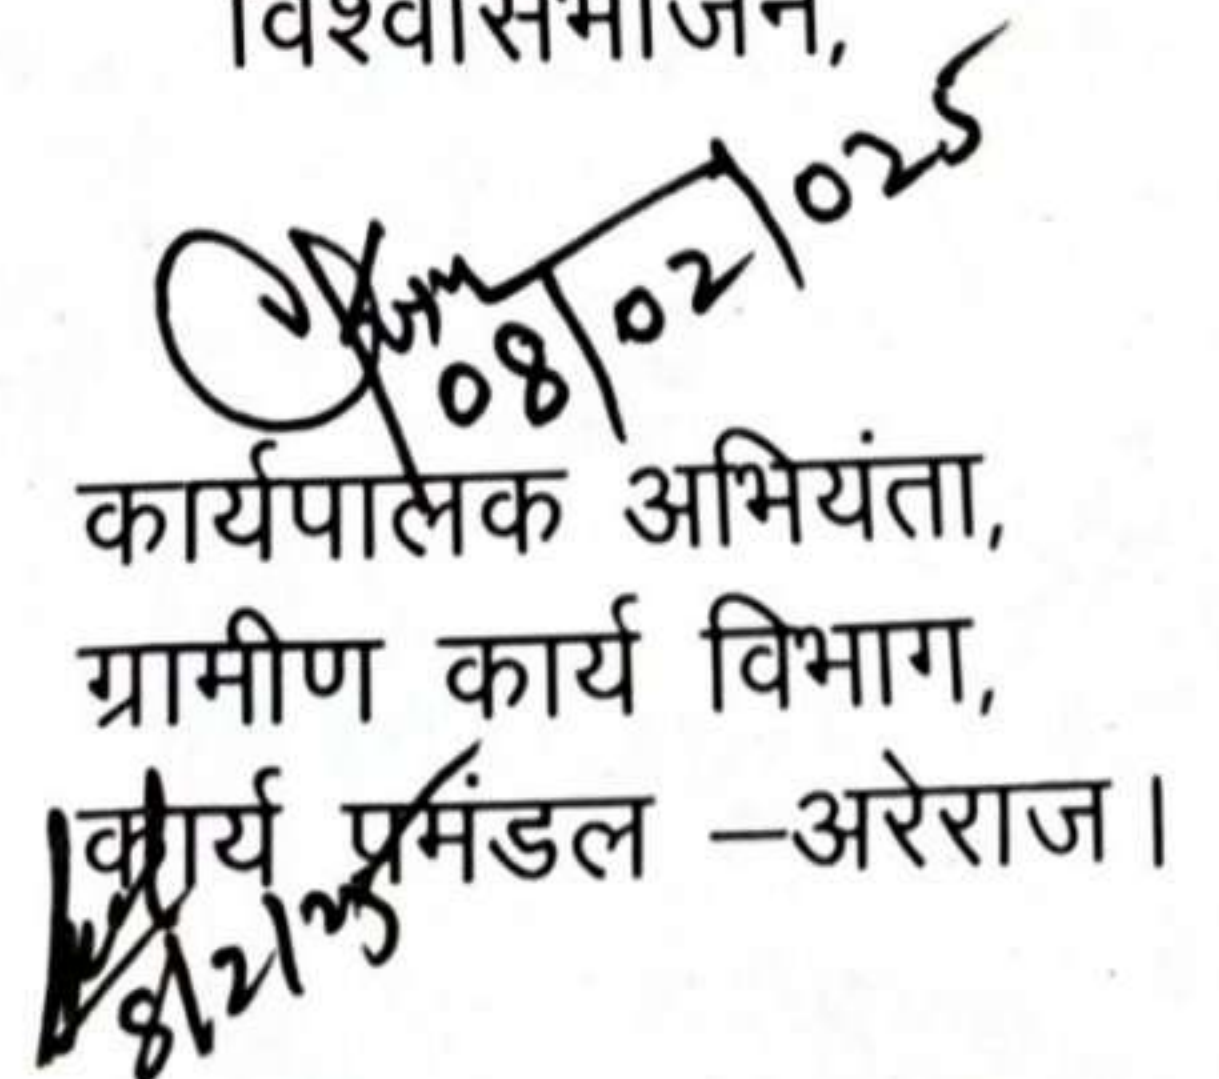 विश्वासभाजन,
08/02/025
कार्यपालक अभियंता,
ग्रामीण कार्य विभाग,
कार्य प्रमंडल –अरेराज।
8/2/25